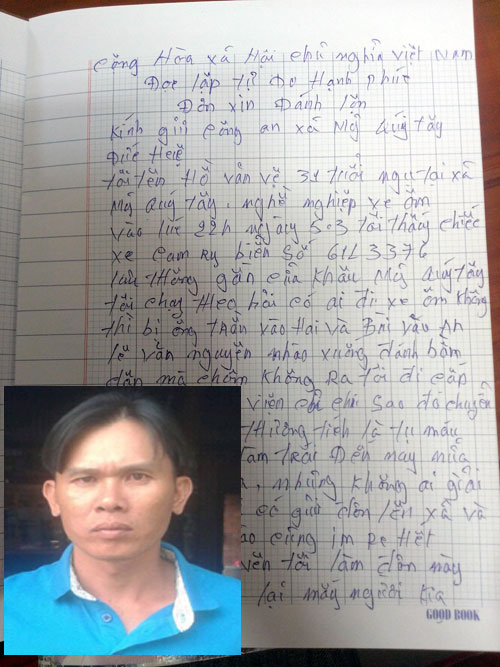 cộng Hòa xã Hội chủ nghĩa việt Nam
Độc lập tự Do Hạnh phúc
Đơn xin Đánh lộn
Kính gửi công an xã Mỹ Quý tây
Đức Huệ
tôi tên Hồ văn vẽ 31 tuổi ngụ tại xã
Mỹ Quý tây. nghề nghiệp xe ôm
vào lúc 22h ngày 5-3 tôi thấy chiếc
xe camry biển số 61L 3376
lưu thông gần cửa khẩu Mỹ Quý tây
tôi chạy theo hỏi có ai đi xe ôm không
thì bị ông trần vào Hai và Bùi văn An
lê văn nguyên nhào xuống đánh bầm
dần mà chồm không Ra tôi đi cấp
viện chi sao đó chuyển
thương tích là tụ máu
tam trái Đến nay nữa
, nhưng không ai giải
có gửi đơn lên xã và
cũng im Re Hết
tôi làm đơn này
lại mấy người kia
GOOD BOOK